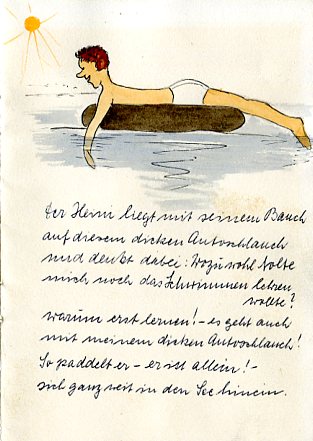 Der Heini liegt mit seinem Bauch
auf diesem dicken Autoschlauch
und denkt dabei: Wozu wohl Nolte
mich noch das Schwimmen lehren
wollte?
warum erst lernen! – es geht auch
mit meinem dicken Autoschlauch!
So paddelt er – er ist allein! –
sich ganz weit in den See hinein.